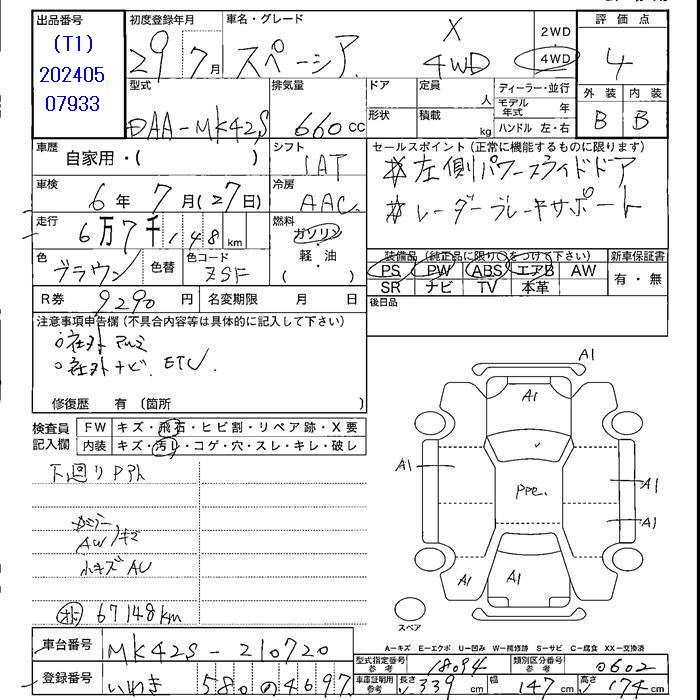 出品番号
(T1)
202405
07933
初度登録年月
29 7月
車名・グレード
スペーシア
X
4WD
2WD
4WD
評価点
4
外装 内装
B B
型式
DAA-MK42S
排気量
660cc
ドア
形状
定員
人
積載
kg
ディーラー・並行
モデル年式 年
ハンドル 左・右
車歴
自家用・( )
シフト
IAT
セールスポイント(正常に機能するものに限ります)
左側パワースライドドア
レーダーブレーキサポート
車検
6年 7月(27日)
冷房
AAC
走行
6万7千148km
燃料
ガソリン
・
軽・油
( )
色
ブラウン
色替
色コード
ZSF
装備品(純正品に限り○をつけて下さい)
PS PW ABS エアB AW
SR ナビ TV 本革
新車保証書
有・無
R券
9290円
名変期限 月 日
後日品
注意事項申告欄(不具合内容等は具体的に記入して下さい)
○社外アルミ
○社外ナビ. ETC.
修復歴 有(箇所 )
検査員
記入欄
FW キズ・飛石・ヒビ割・リペア跡・X要
内装 キズ・汚れ・コゲ・穴・スレ・キレ・破レ
下廻り
AWキズ
小キズAU
67148km
A1
A1
A1
A1
A1
A1
A1
PPe.
スペア
A-キズ E-エクボ U-凹み W-補修跡 S-サビ C-腐食 XX-交換済
車台番号
MK42S-210720
型式指定番号
参考
18094
類別区分番号
参考
0602
登録番号
いわき 580 の 4697
車庫証明用
参考
長さ 339cm
幅 147cm
高さ 174cm